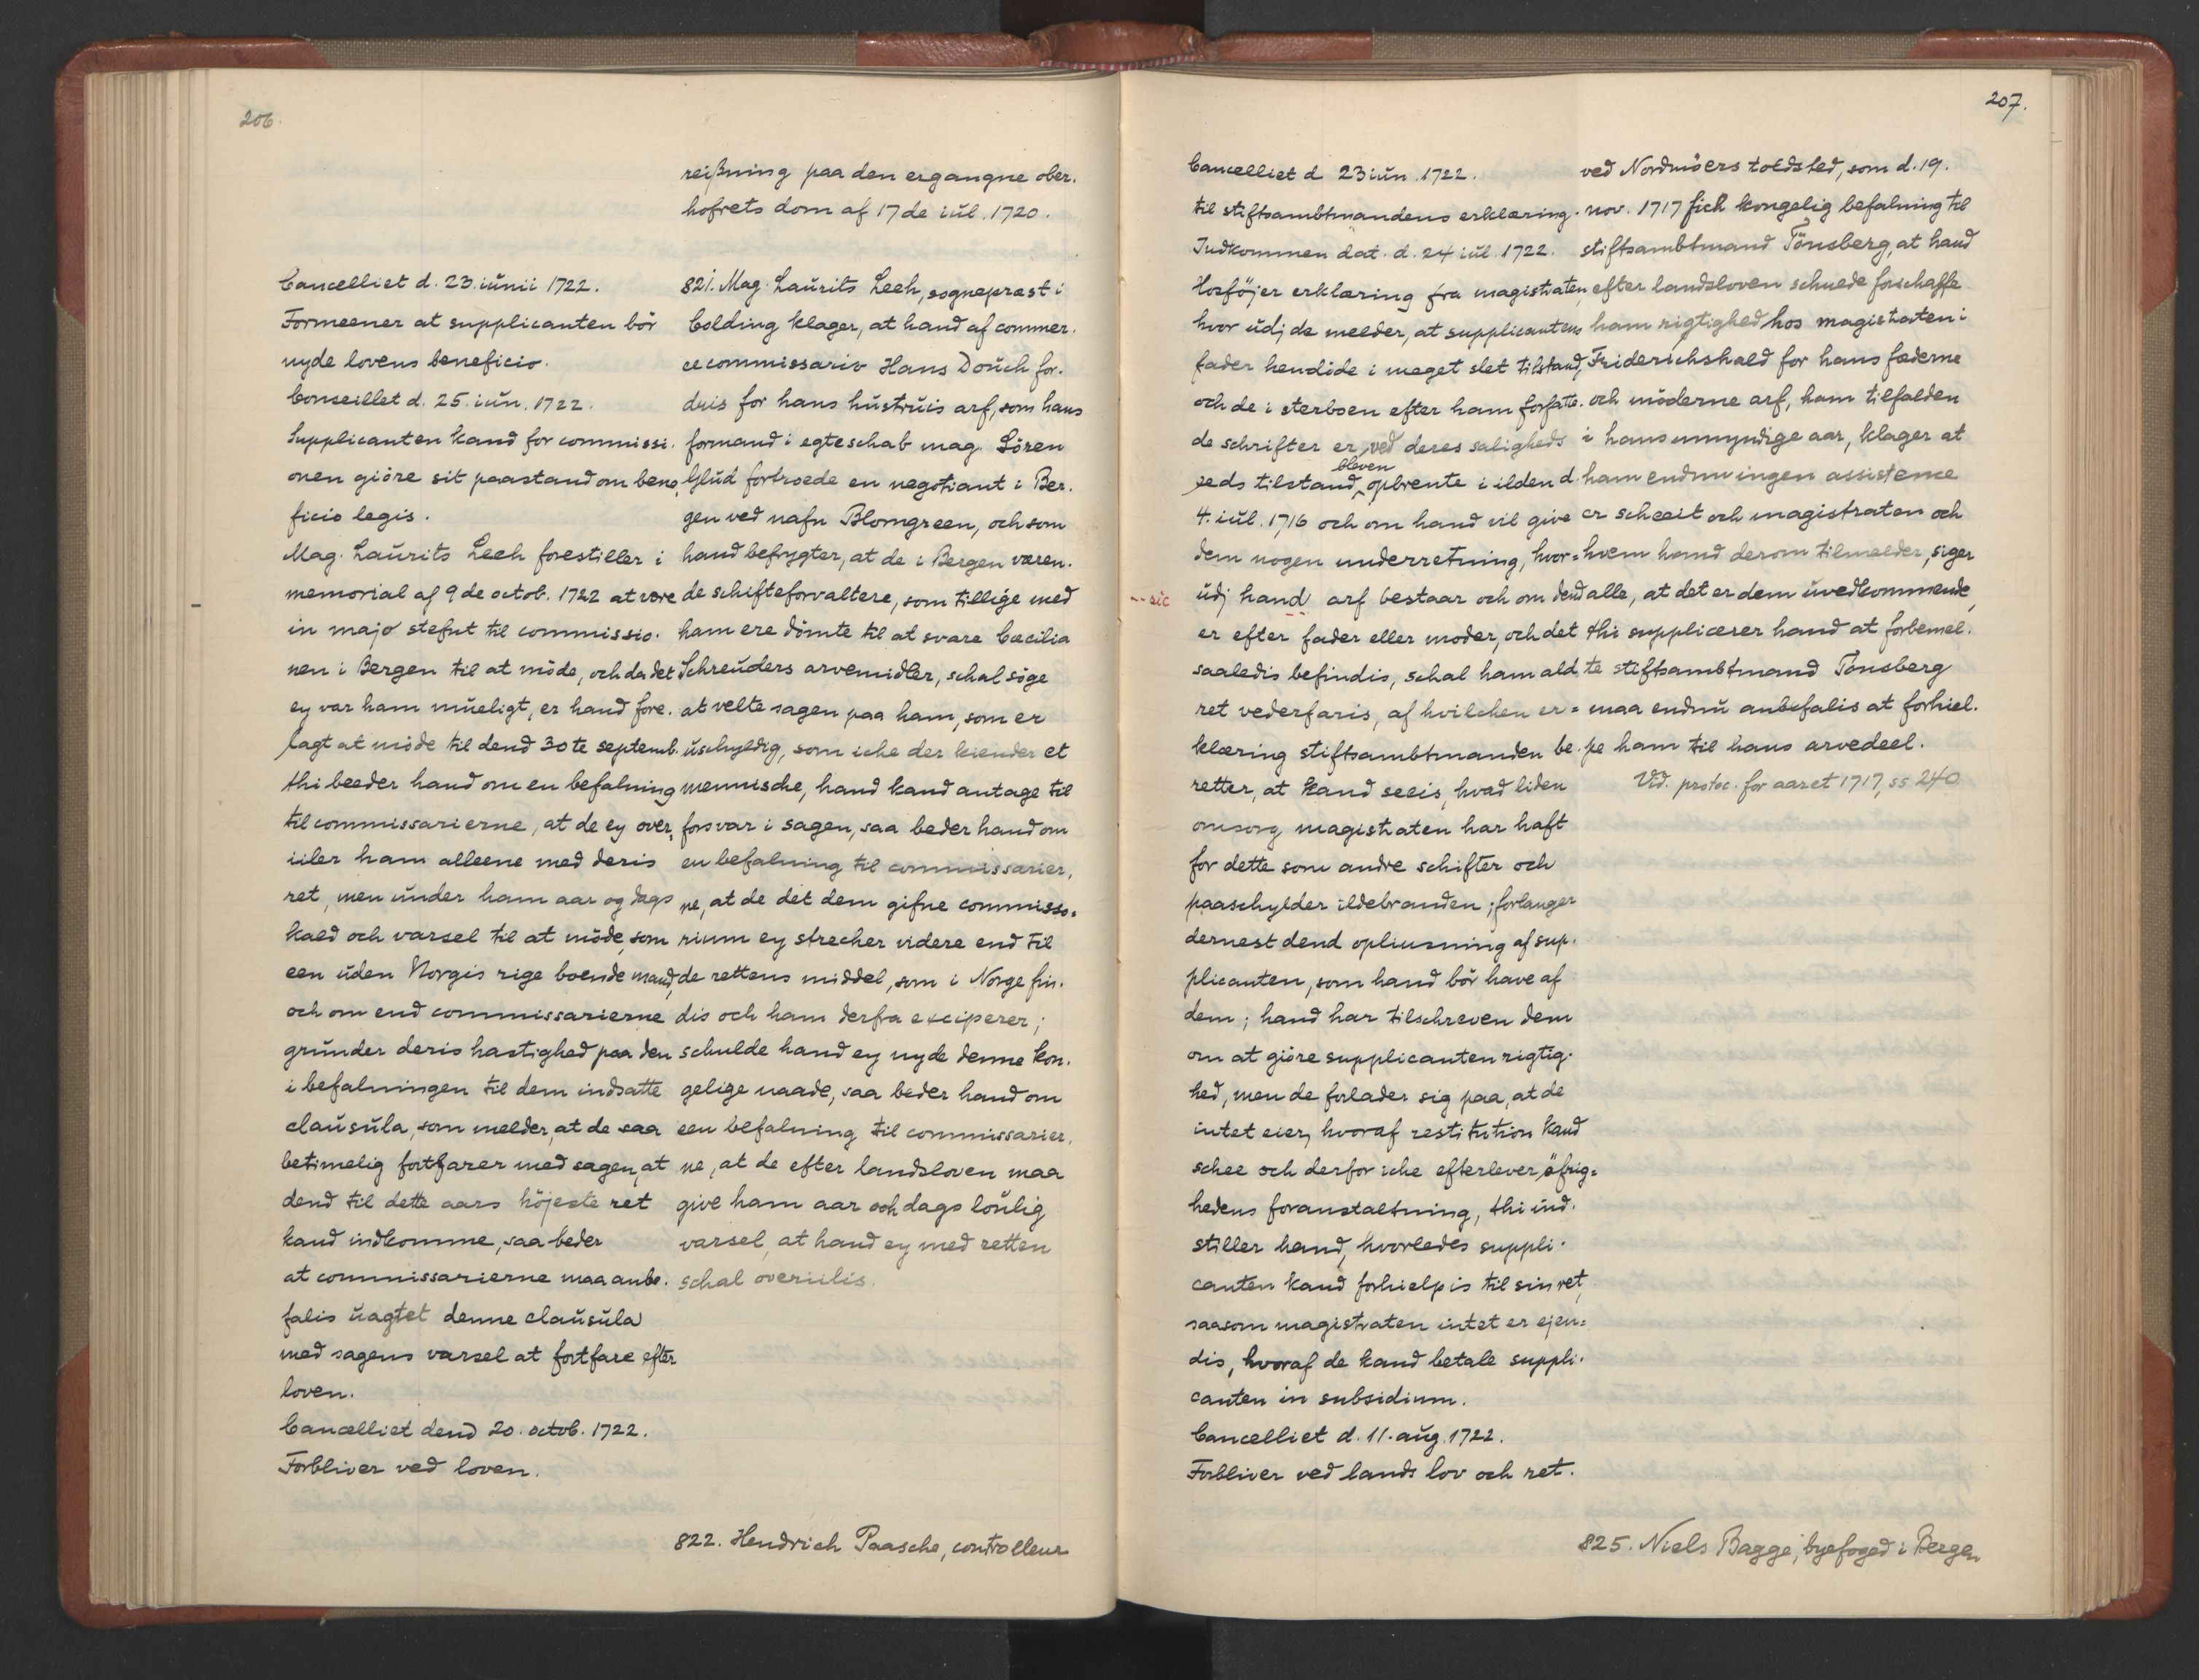 206.
reißning paa den ergangne ober-
hofrets dom af 17de iül. 1720.
Cancelliet d. 23. iünii 1722.
Formeener at supplicanten bör
nyde lovens beneficio.
Conseillet d. 25. iün. 1722.
Supplicanten kand for commissi-
onen giöre sit paastand om bene-
ficio legis.
Mag. Laurits Leeh forestiller i
memorial af 9de octob. 1722 at være
in majo stefnt til commissio-
nen i Bergen til at möde, och da det
ey var ham müeligt, er hand fore-
lagt at möde til dend 30te septemb.
thi beeder hand om en befalning
til commissarierne, at de ey over-
iiler ham alleene med deris
ret, men ünder ham aar og dags
kald och varsel til at möde, som
een üden Norgis rige boende mand,
och om end commissarierne
gründer deris hastighed paa den
i befalningen til dem indsatte
claüsüla, som melder, at de saa
betimelig fortfarer med sagen, at
dend til dette aars höjeste ret
kand indkomme, saa beder
at commissarierne maa anbe-
falis üagtet denne claüsüla
med sagens varsel at fortfare efter
loven.
Cancelliet dend 20. octob. 1722.
Forbliver ved loven.
821. Mag. Laürits Leeh, sognepræst i
Colding klager, at hand af commer-
cecommissario Hans Doüch for-
dris for hans hüstrüis arf, som hans
formand i egteschab mag. Sören
Glüd fortroede en negotiant i Ber-
gen ved nafn Blomgreen, och som
hand befrygter, at de i Bergen væren-
de schifteforvaltere, som tillige med
ham ere dömte til at svare Cæcilia
Schreüders arvemidler, schal söge
at velte sagen paa ham, som er
üschyldig, som iche der kiender et
mennische, hand kand antage til
forsvar i sagen, saa beder hand om
en befalning til commissarier-
ne, at de det dem gifne commisso-
rium ey strecher videre end til
de rettens middel, som i Norge fin-
dis och ham derfra exciperer;
schulde hand ey nyde denne kon-
gelige naade, saa beder hand om
een befalning til commissarier-
ne, at de efter landsloven maa
give ham aar och dags loülig
varsel, at hand ey med retten
schal overiilis.
822. Hendrich Paasche, controlleur
207.
Cancelliet d. 23 iün. 1722.
til stiftsambtmandens erklæring.
Indkommen dat. d. 24 iül. 1722.
Hosföjer erklæring fra magistraten
hvor üdj de melder, at supplicantens
fader hendöde i meget slet tilstand,
och de i sterboen efter ham forfatte-
de schrifter er ved deres saligheds
eeds tilstand bleven opbrente i ilden d.
4. iül. 1716 och om hand vil give
dem nogen underretning, hvor=
-- sic
üdj hand arf bestaar och om dend
er efter fader eller moder, och det
saaledis befindis, schal ham ald
ret vederfaris, af hvilchen er=
klæring stiftsambtmanden be-
retter, at kand seeis, hvad liden
omsorg magistraten har haft
for dette som andre schifter och
paaschylder ildebranden; forlanger
dernest dend opliusning af sup-
plicanten, som hand bör have af
dem; hand har tilschreven dem
om at giöre supplicanten rigtig-
hed, men de forlader sig paa, at de
intet eier, hvoraf restitution kand
schee och derfor iche efterlever öfrig=
hedens foranstaltning, thi ind-
stiller hand, hvorledes suppli-
canten kand forhielpis til sin ret,
saasom magistraten intet er ejen=
dis, hvoraf de kand betale suppli-
canten in subsidium.
Cancelliet d. 11. aüg. 1722.
Forbliver ved lands lov och ret.
ved Nordmöers toldsted, som d. 19.
nov. 1717 fich kongelig befalning til
stiftsambtmand Tönsberg, at hand
efter landsloven schuede forschaffe
ham rigtighed hos magistraten i
Friderichshald for hans fæderne
och möderne arf, ham tilfalden
i hans umyndige aar, klager at
ham endnu ingen assistence
er scheeit och magistraten och
hvem hand derom tilmelder, siger
alle, at det er dem üvedkommende,
thi supplicerer hand at forbemel-
te stiftsambtmand Tönsberg
maa endnü anbefalis at forhiel-
pe ham til hans arvedeel.
Vid. protoc. for aaret 1717, ss 240
825. Niels Bagge, byefoged i Bergen